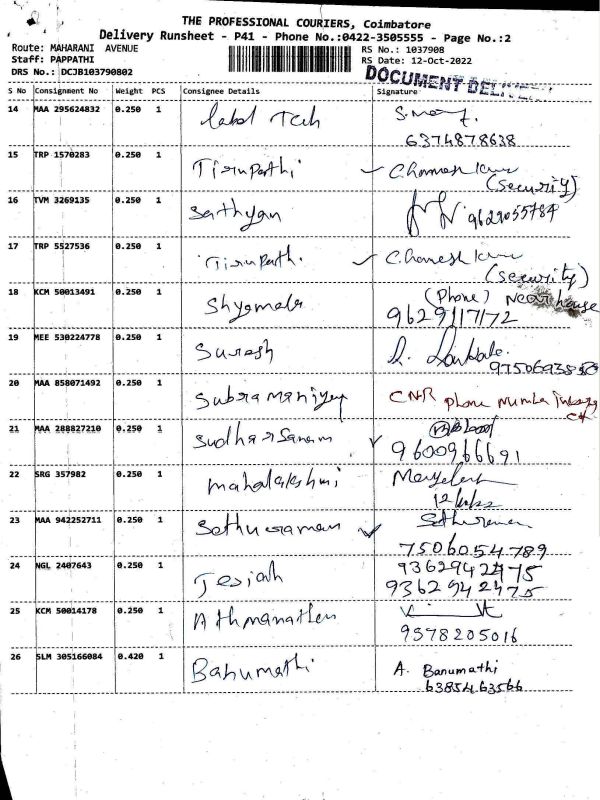 THE PROFESSIONAL COURIERS, Coimbatore
Delivery Runsheet - P41 - Phone No.:0422-3505555 - Page No.:2
Route: MAHARANI AVENUE RS No.: 1037908
Staff: PAPPATHI RS Date: 12-Oct-2022
DRS No.: DCJB103790802 DOCUMENT
S No Consignment No Weight PCS Consignee Details Signature
14 MAA 295624832 0.250 1 Label Tech
6374878638
15 TRP 1570283 0.250 1 Tirupathi
(Security)
16 TVM 3269135 0.250 1 Sathyan 9629055784
17 TRP 5527536 0.250 1 Tirupathi
(Security)
18 KCM 50013491 0.250 1 Shyamala (Phone) Near house
9629117172
19 MEE 530224778 0.250 1 Suresh
20 MAA 858071492 0.250 1 Subramaniyan CNR phone number
21 MAA 288827210 0.250 1 Sudharsanam
9600966691
22 SRG 357982 0.250 1 mahalakshmi
23 MAA 942252711 0.250 1 Sethuraman
7506054789
24 NGL 2407643 0.250 1 9362942475
9362942475
25 KCM 50014178 0.250 1 Athmanathan
9578205016
26 SLM 305166084 0.420 1 Banumathi A. Banumathi
6385463566